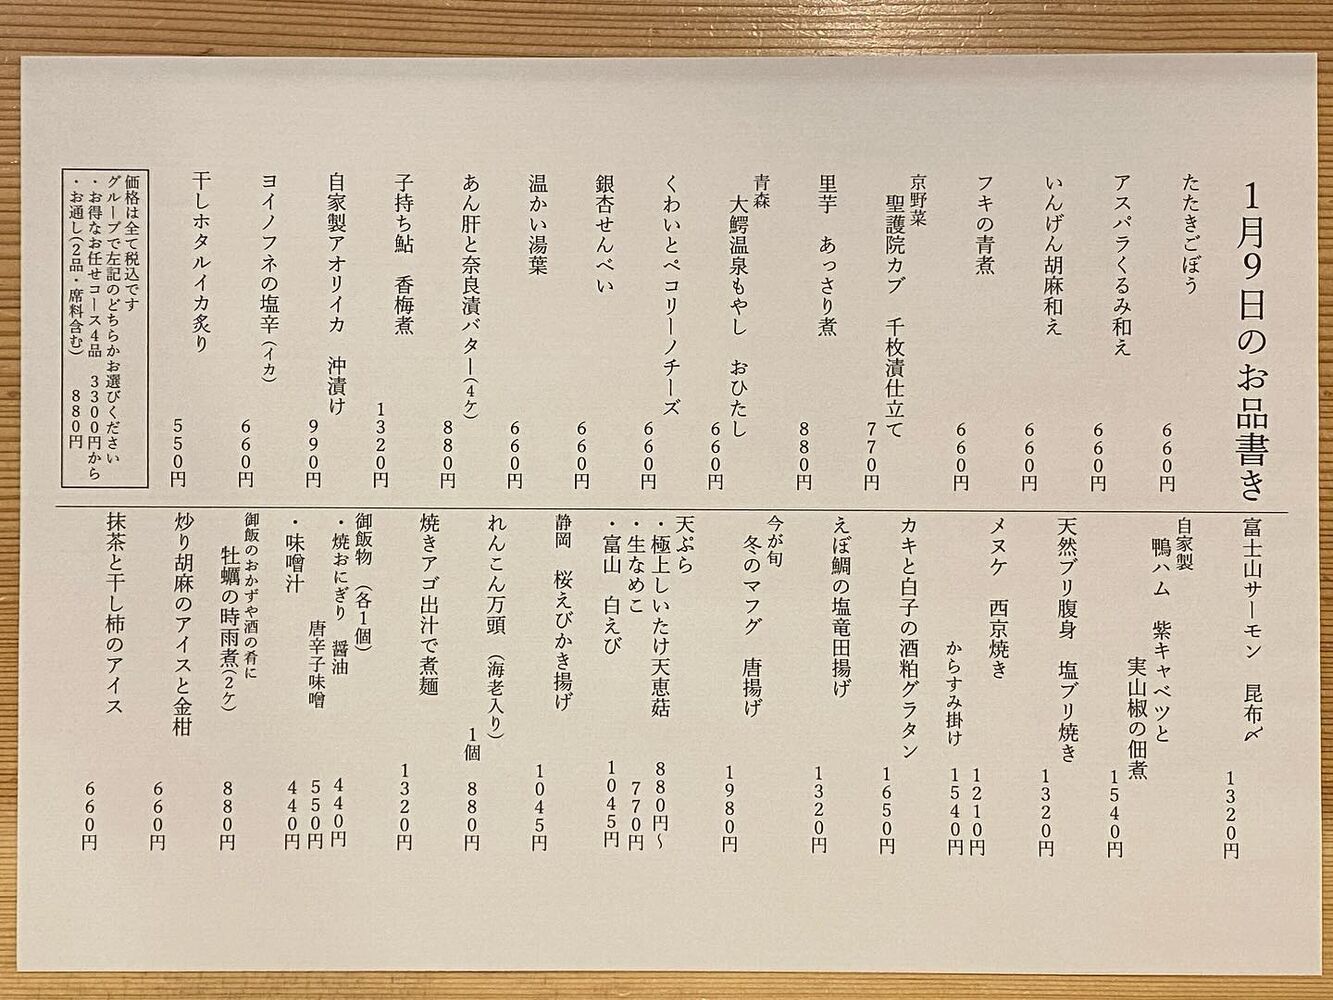 1月9日のお品書き
たたきごぼう
660円
アスパラくるみ和え
660円
いんげん胡麻和え
660円
フキの青煮
660円
京野菜
聖護院カブ 千枚漬仕立て
770円
里芋 あっさり煮
880円
青森
大鰐温泉もやし おひたし
660円
くわいとペコリーノチーズ
660円
銀杏せんべい
660円
温かい湯葉
660円
あん肝と奈良漬バター(4ケ)
880円
子持ち鮎 香梅煮
1320円
自家製アオリイカ 沖漬け
990円
ヨイノフネの塩辛(イカ)
660円
干しホタルイカ炙り
550円
価格は全て税込です
グループで左記のどちらかお選びください
・お得なお任せコース4品 3300円から
・お通し(2品・席料含む) 880円
富士山サーモン 昆布〆
1320円
自家製
鴨ハム 紫キャベツと
実山椒の佃煮
1540円
天然ブリ腹身 塩ブリ焼き
1320円
メヌケ 西京焼き
1210円
からすみ掛け
1540円
カキと白子の酒粕グラタン
1650円
えぼ鯛の塩竜田揚げ
1320円
今が旬
冬のマフグ 唐揚げ
1980円
天ぷら
・極上しいたけ天恵菇 880円〜
・生なめこ 770円
・富山 白えび 1045円
静岡 桜えびかき揚げ
1045円
れんこん万頭 (海老入り)
1個
880円
焼きアゴ出汁で煮麺
1320円
御飯物 (各1個)
・焼おにぎり 醤油 440円
唐辛子味噌 550円
・味噌汁 440円
御飯のおかずや酒の肴に
牡蠣の時雨煮(2ケ)
880円
炒り胡麻のアイスと金柑
660円
抹茶と干し柿のアイス
660円